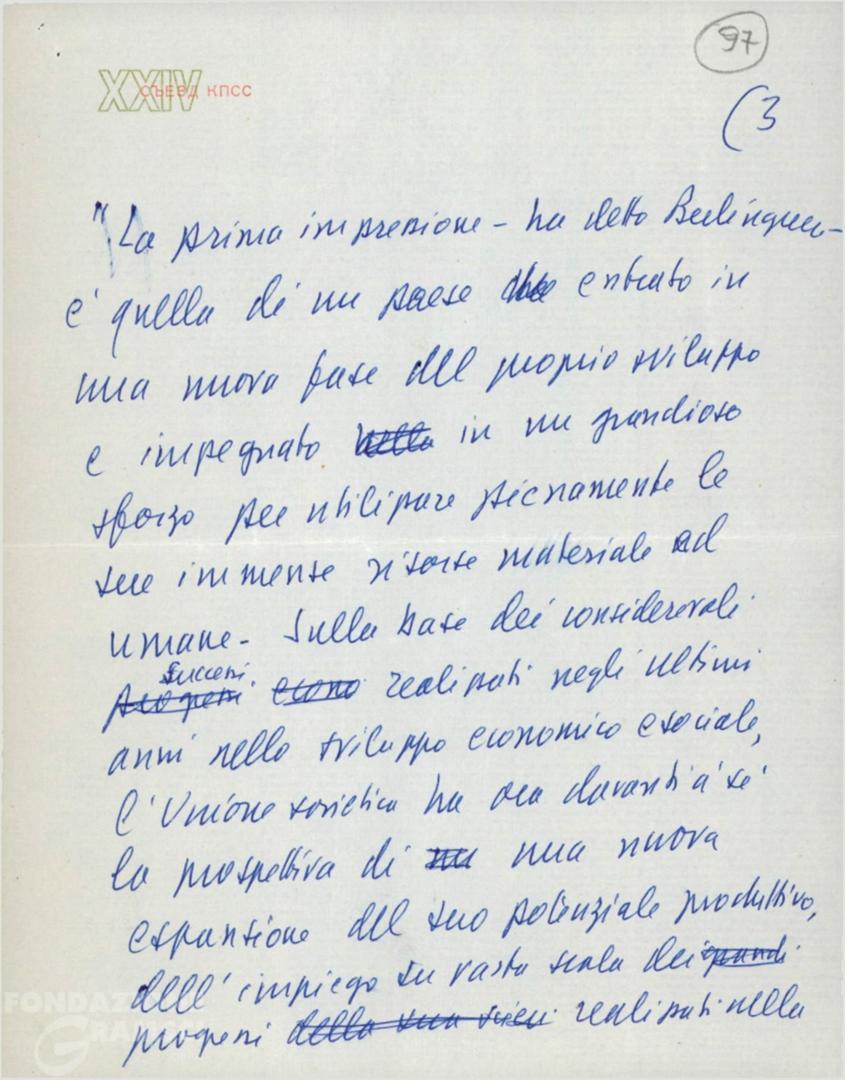 97
XXIV СЪЕЗД КПСС
(3
"La prima impressione - ha detto Berlinguer -
è quella di un paese che entrato in
una nuova fase del proprio sviluppo
e impegnato nella in un grandioso
sforzo per utilizzare pienamente le
sue immense risorse materiale ed
umane - Sulla base dei considerevoli
successi
progressi econo realizzati negli ultimi
anni nello sviluppo economico e sociale,
l'Unione sovietica ha ora davanti a sé
la prospettiva di una nuova
espansione del suo potenziale produttivo,
dell'impiego su vasta scala dei grandi
progressi della sua scien realizzati nella
FONDAZIONE
GRAMSCI